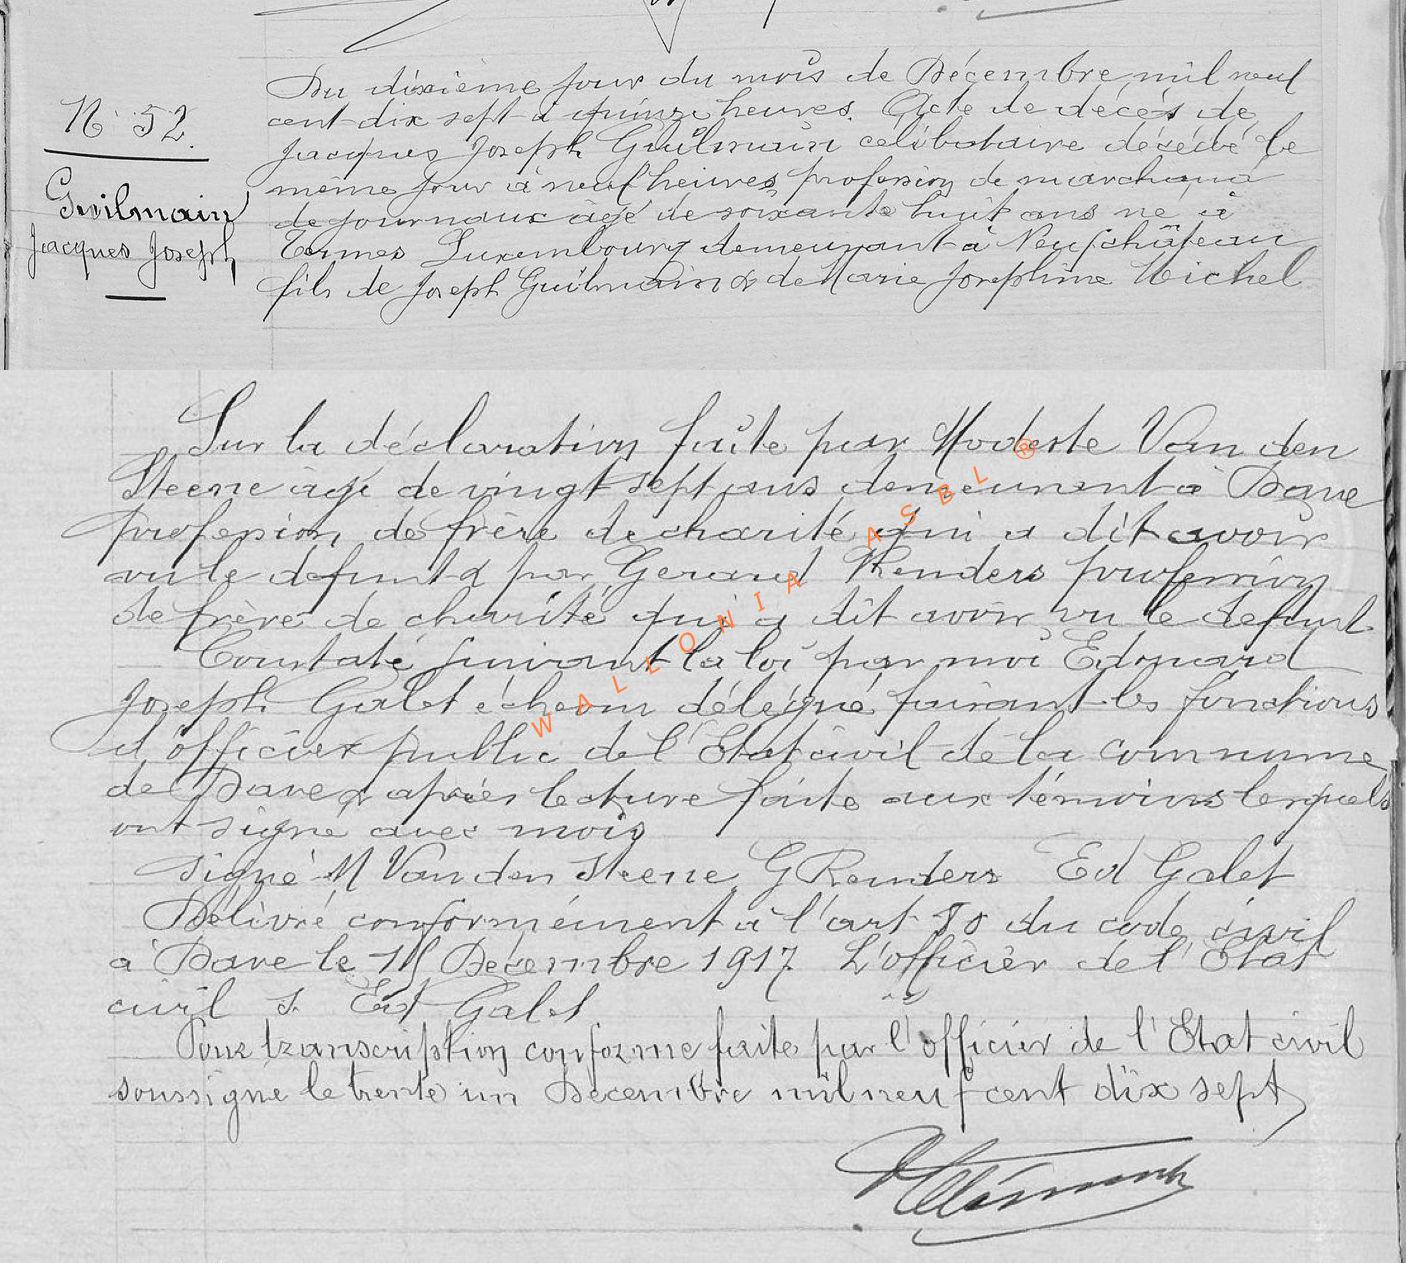 N° 52.
Guilmain
Jacques Joseph
Du dixième jour du mois de Décembre mil neuf
cent dix sept à quinze heures. Acte de décès de
Jacques Joseph Guilmain célibataire décédé le
même jour à neuf heures, profession de marchand
de journaux âgé de soixante huit ans né à
Termes Luxembourg demeurant à Neufchâteau
fils de Joseph Guilmain & de Marie Josephine Michel
Sur la déclaration faite par Modeste Van den
Steene âgé de vingt sept ans demeurant à Dave
profession de frère de charité qui a dit avoir
vu le defunt & par Gerard Renders profession
de frère de charité qui a dit avoir vu le defunt
Constaté suivant la loi par moi Edouard
Joseph Galet échevin délégué faisant les fonctions
d'officier public de l'Etat civil de la commune
de Dave & après lecture faite aux témoins lesquels
ont signé avec mois
Signé M Van den Steene G Renders Ed Galet
Délivré conformément à l'art 80 du code civil
à Dave le 15 Décembre 1917 L'officier de l'Etat
civil s. Ed Galet
Pour transcription conforme faite par l'officier de l'Etat civil
soussigné le trente un Décembre mil neuf cent dix sept
WALLONIA ASBL ®